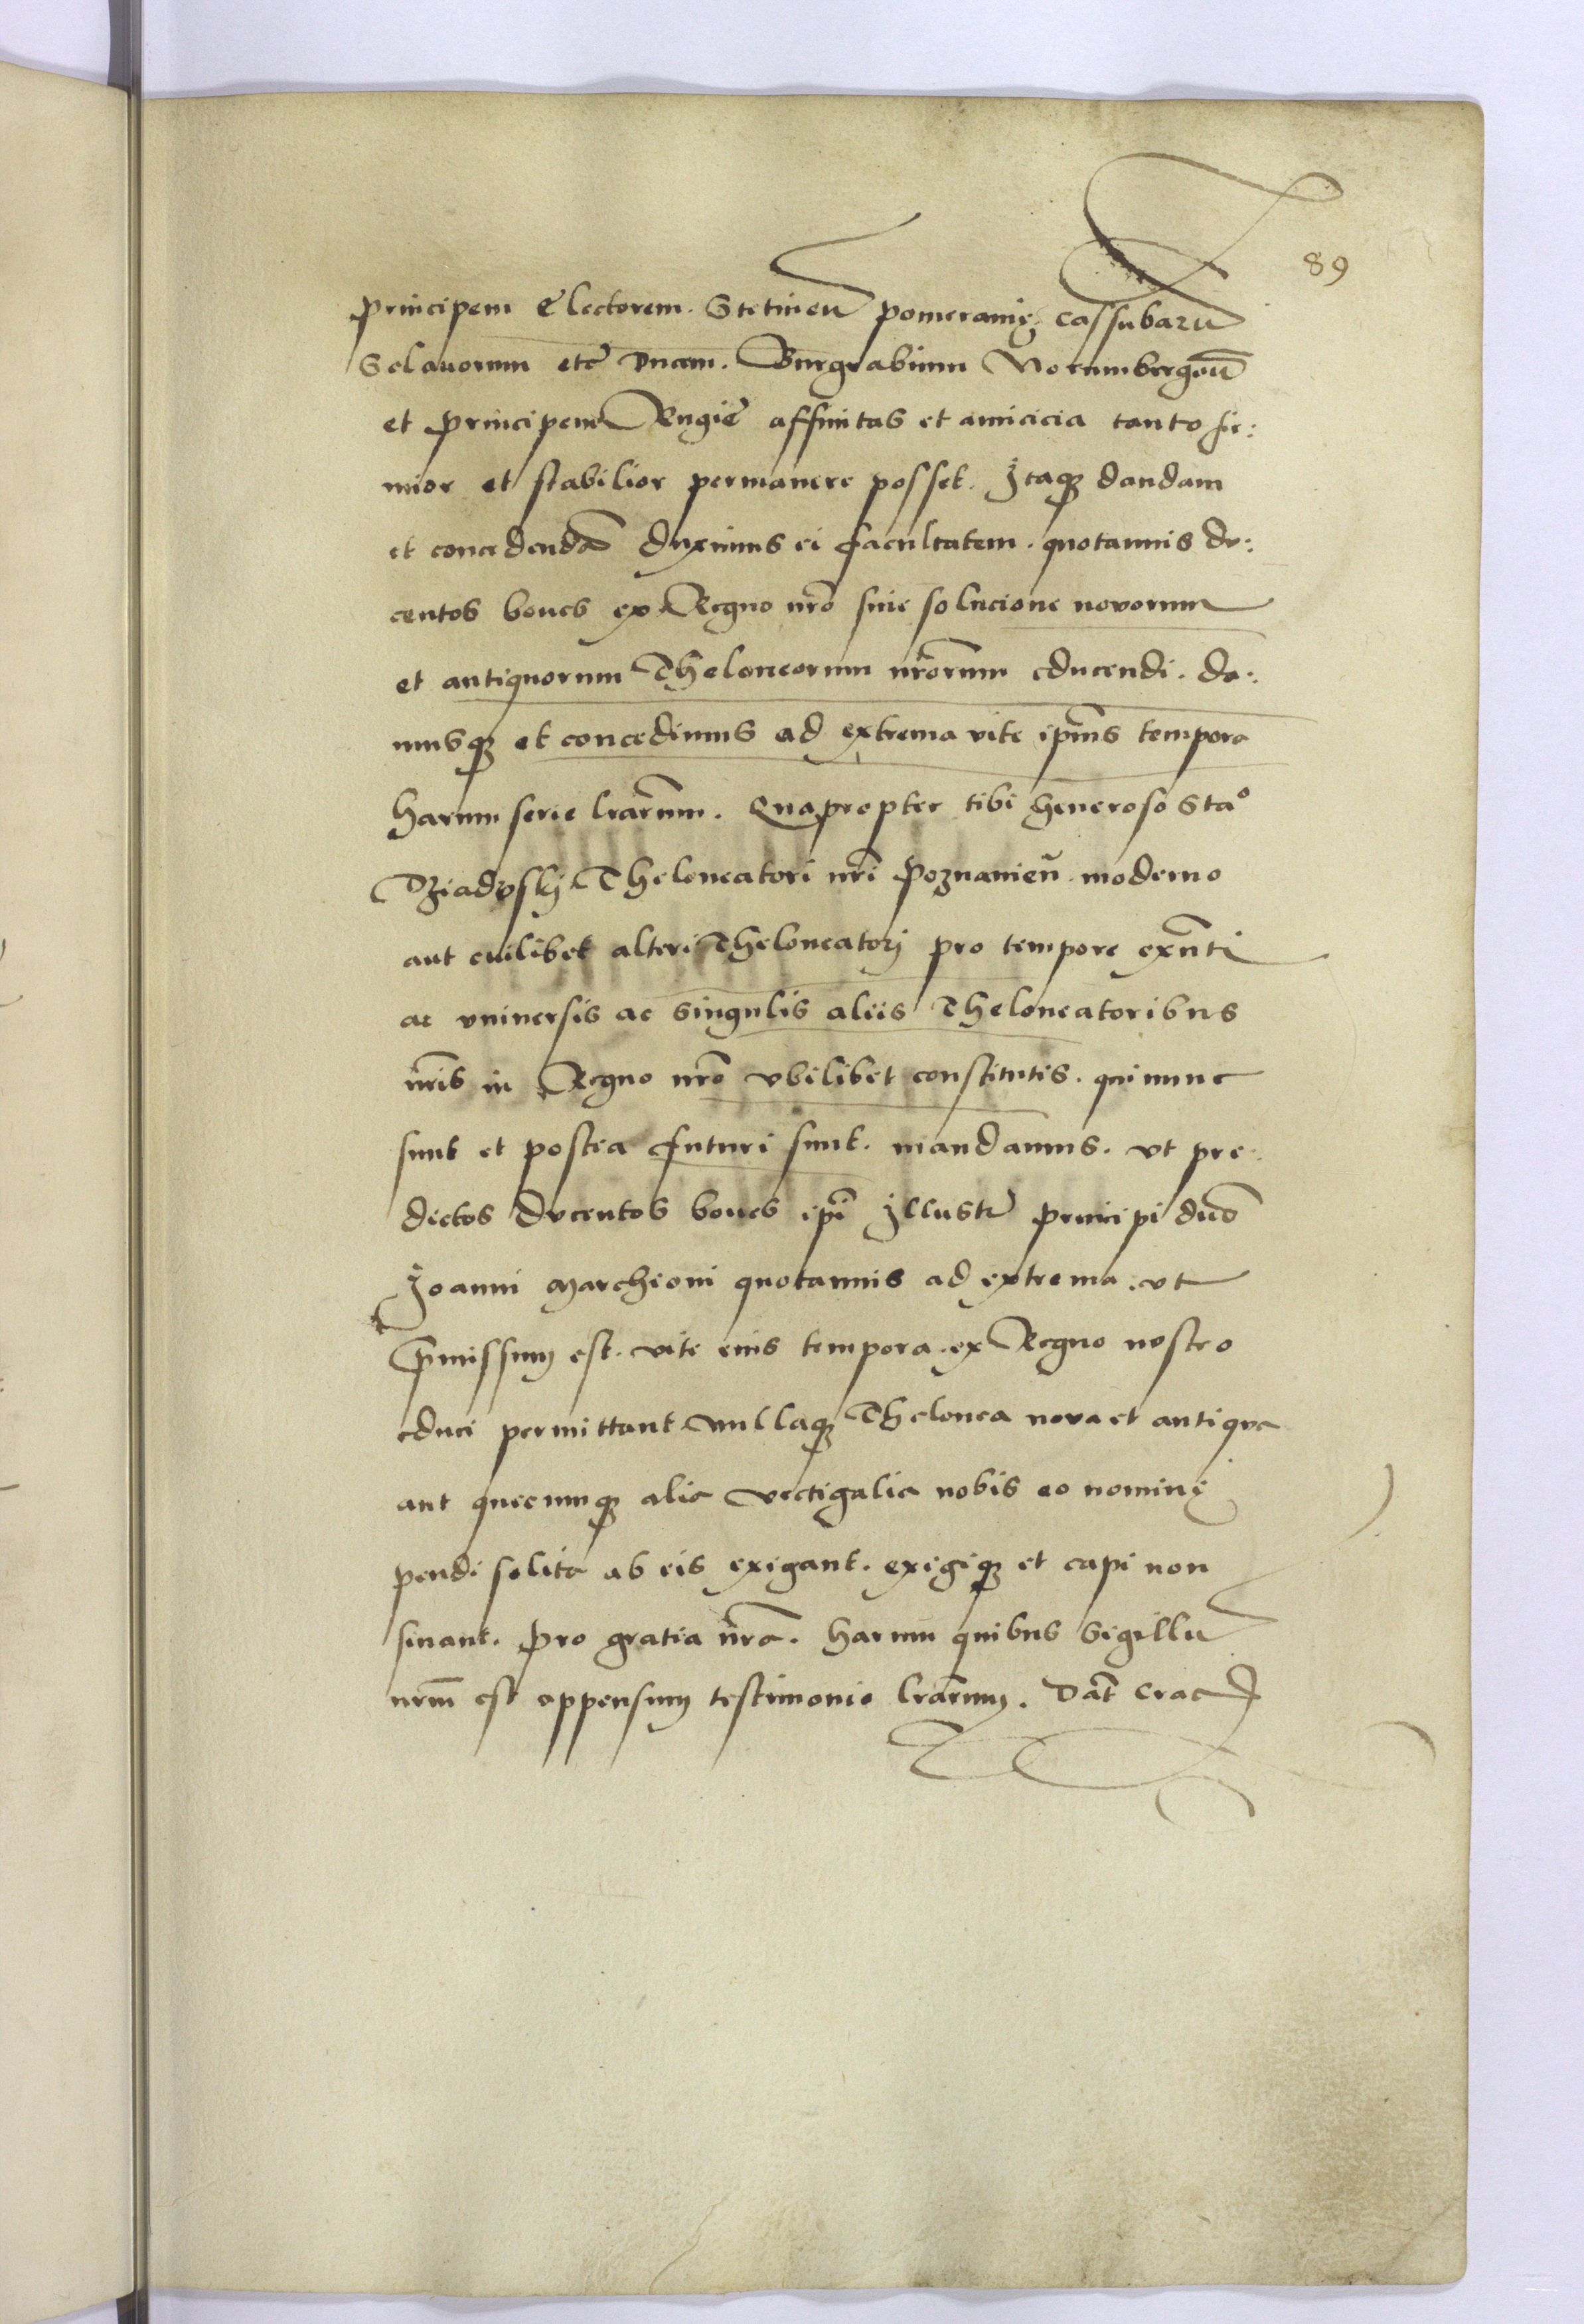 89
principem Electorem. Stetineñ pomeranię Cassubarũ
Sclauorum etc̃ Ducem. Burgrabium Norumbergeñ
et principem Rugiẽ affinitas et amicicia tanto fir:
mior et stabilior permanere posset. Itaqꝫ dandam
et concedendã duximus ei facultatem. quotannis du:
centos boues ex Regno nr̃o sine solucione novorum
et antiquorum Theloneorum nr̃orum educendi. da:
musqꝫ et concedimus ad extrema vite ip̃ius tempora
harum serie lr̃arum. Quapropter tibi Generoso Stao
Dziadoskj Theloneatori nr̃i Poznanieñ moderno
aut cuilibet alteri Theloneatorj pro tempore exñti
ac vniuersis ac singulis aliis Theloneatoribus
nr̃is in Regno nr̃o vbilibet constitutis. qui nunc
sunt et postea futuri sunt. mandamus. vt pre:
dictos ducentos boues ip̃i Illustr̃ principi dño
Joanni Marchioni quotannis ad extrema. vt
p̃missum est. vite eius tempora. ex Regno nostro
educi permittant nullaqꝫ Thelonea nova et antiqua
aut quecunqꝫ alia vectigalia nobis eo nominę
pendi solita ab eis exigant. exigiqꝫ et capi non
sinant. pro gratia nr̃a. Harum quibus Sigillũ
nr̃m est appensum testimonio lr̃arum. Dat̃ Crac